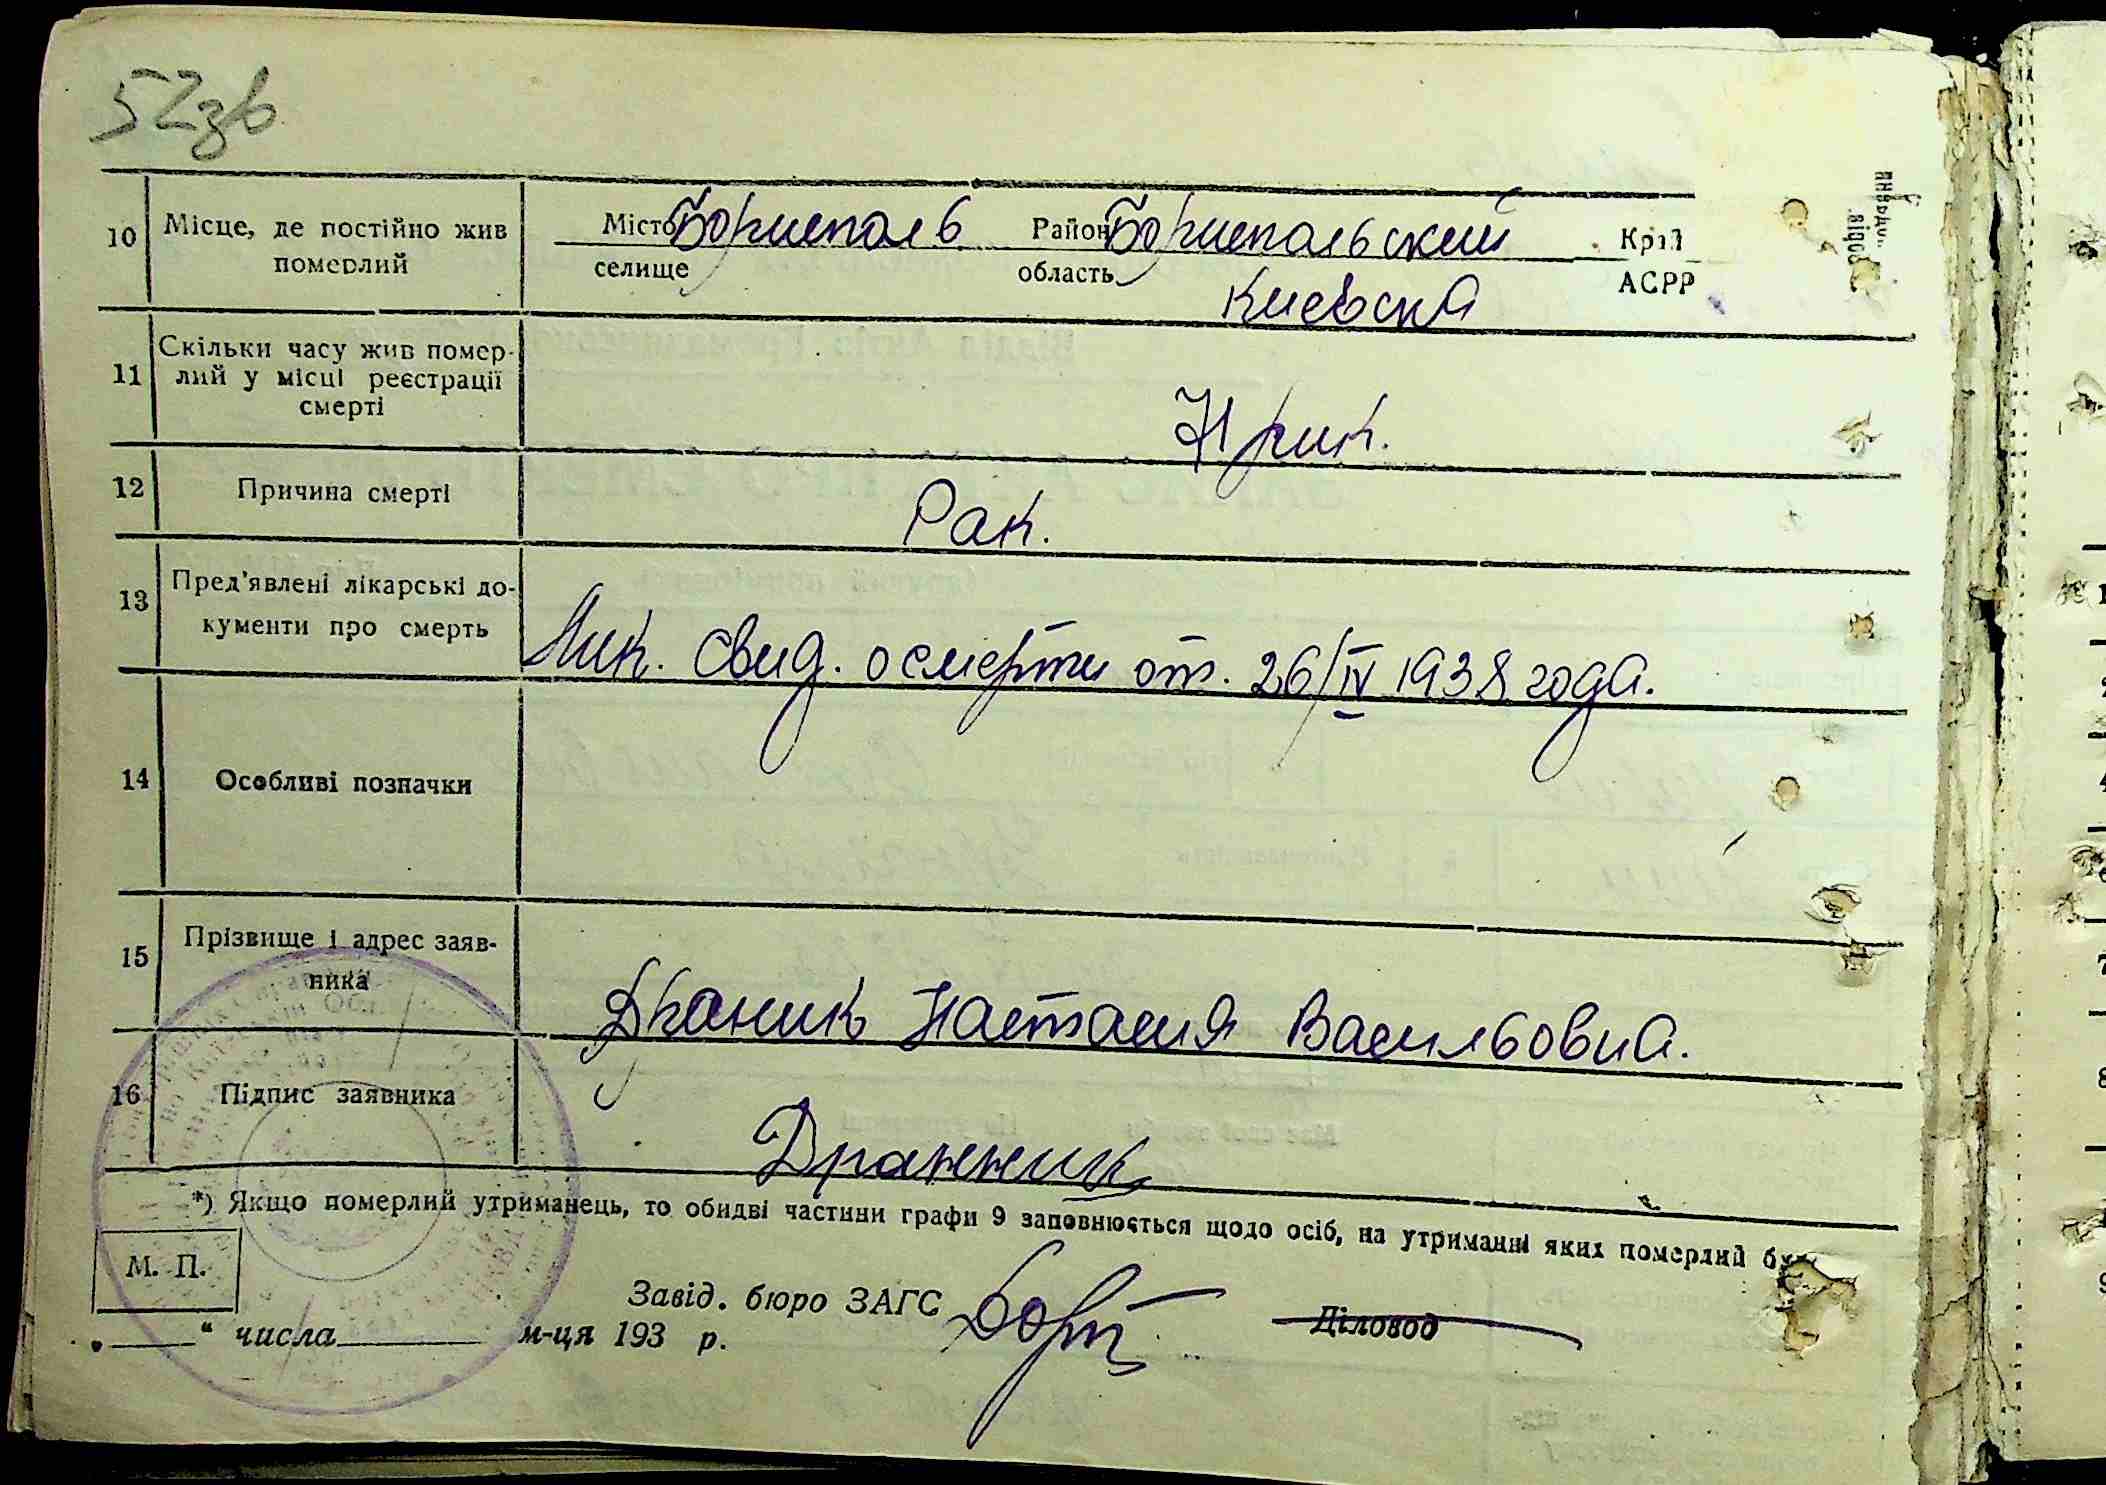 52зв
10 Місце, де постійно жив Місто Бориеполь Район Бориепольский Край
померлий селище область Киевска АСРР
11 Скільки часу жив помер-
лий у місці реєстрації
смерті
12 Причина смерті Рак.
13 Пред'явлені лікарські до-
кументи про смерть Лик. Свид. о смерти от. 26/IV 1938 года.
14 Особливі позначки
15 Прізвище і адрес заяв-
ника Драник Настасия Васильовна.
16 Підпис заявника Дранник
*) Якщо померлий утриманець, то обидві частини графи 9 заповнюється щодо осіб, на утриманні яких померлий був
М. П.
Завід. бюро ЗАГС Діловод
„ “ числа м-ця 193 р.